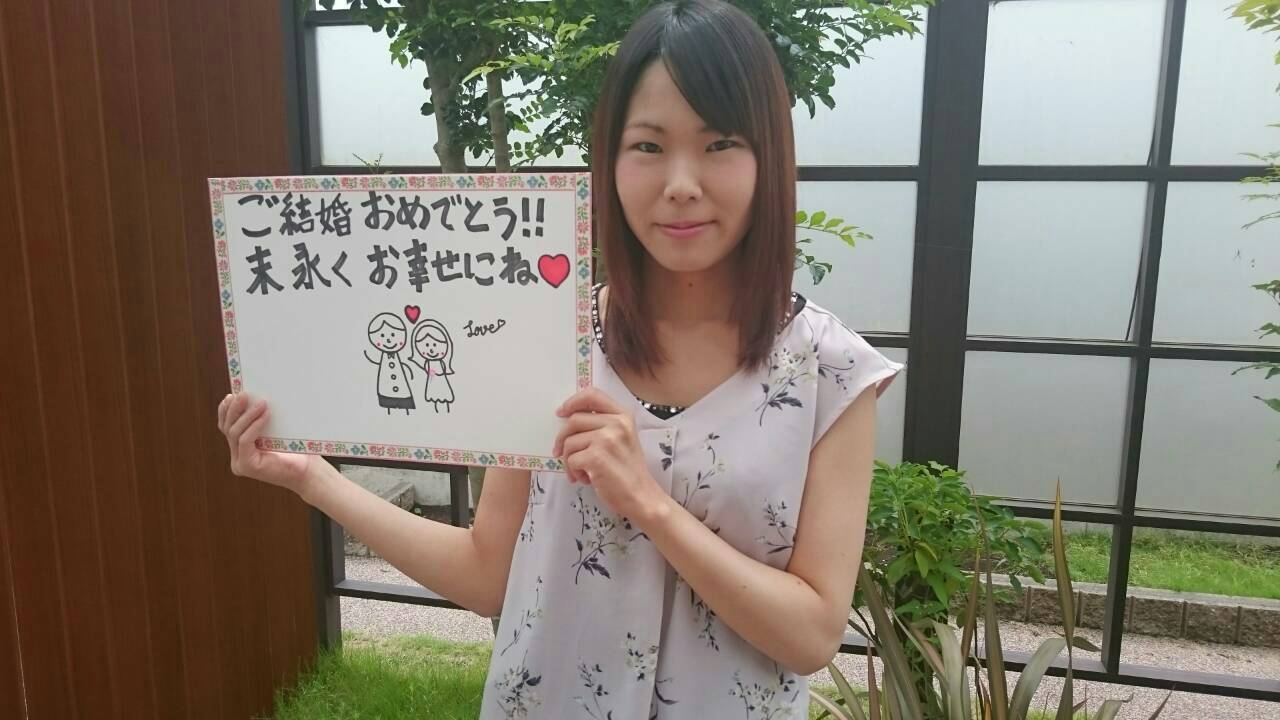 ご結婚おめでとう!!
末永くお幸せにね♥
Love♡